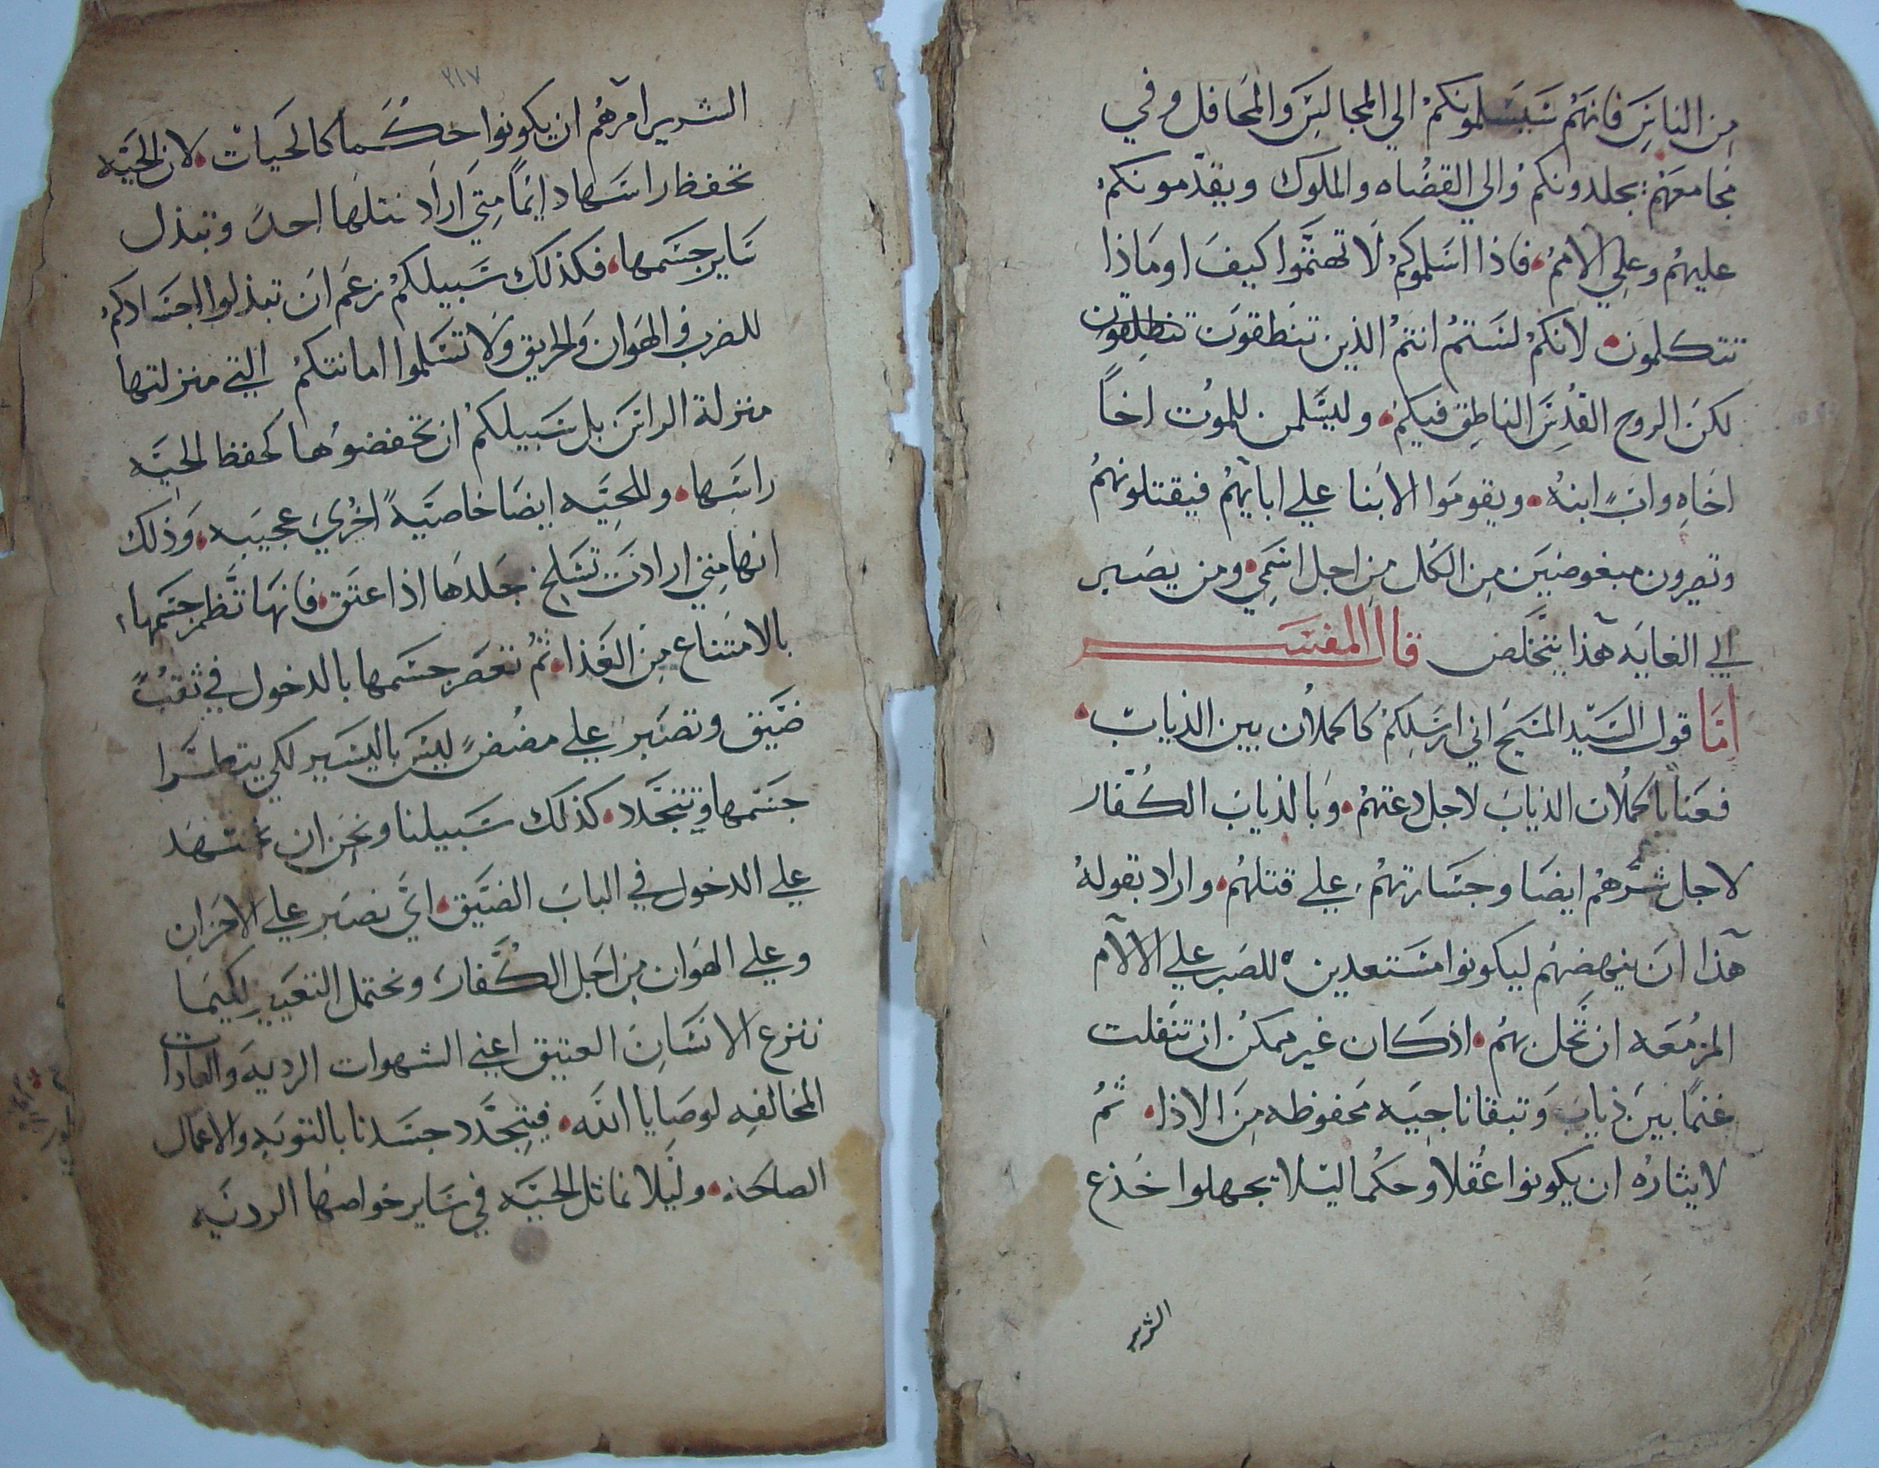 من الناس فانهم سيسلمونكم الي المجالس والمحافل وفي
مجامعهم يجلدونكم والي القضاه والملوك ويقدمونكم
عليهم وعلي الامم فاذا اسلموكم لا تهتموا كيف او ماذا
تتكلمون لانكم لستم انتم الذين تنطقون تنطقون
لكن الروح القدس الناطق فيكم وليسلمن للموت اخاً
اخاه واب ابنه ويقوموا الابنا علي ابايهم فيقتلونهم
وتصرون مبغوضين من الكل من اجل اسمي ومن يصبر
الي الغايه هذا يتخلص قال المفسر
اما قول السيد المسيح اني ارسلكم كالحملان بين الذياب
فعنا بالحملان الذياب لاجل دعتهم وبالذياب الكفار
لاجل شرهم ايضا وجسارتهم علي قتلهم واراد بقوله
هذا ان ينهضهم ليكونوا مستعدين للصبر علي الالام
المزمعه ان تحل بهم اذ كان غير ممكن ان تنفلت
غنماً بين ذياب وتبقا ناجيه محفوظه من الاذا ثم
لايثاره ان يكونوا عقلا وحكما ليلا يجهلوا خدع
الشرير
٢١٧
الشرير امرهم ان يكونوا حكما كالحيات لان الحيه
تحفظ راسها دايماً متي اراد قتلها احد وتبذل
ساير جسمها فكذلك سبيلكم زعم ان تبذلوا اجسادكم
للضرب والهوان والحريق ولا تسلموا امانتكم التي منزلتها
منزلة الراس بل سبيلكم ان تحفضوها كحفظ الحيه
راسها وللحيه ايضا خاصيةً اخري عجيبه وذلك
انها متي ارادت تسلخ جلدها اذا عتق فانها تظمر جسمها
بالامتناع من الغذا ثم تعصر جسمها بالدخول في ثقبً
ضيق وتصبر علي مضضٍ ليس باليسير لكي يتطرا
جسمها ويتجدد كذلك سبيلنا ونحن ان نجتهد
علي الدخول في الباب الضيق اي نصبر علي الاحزان
وعلي الهوان من اجل الكفار ونحتمل التعيير لكيما
ننزع الانسان العتيق اعني الشهوات الرديه والعادات
المخالفه لوصايا الله فيتجدد جسدنا بالتوبه والاعمال
الصالحه وليلا نماثل الحيه في ساير خواصها الرديه